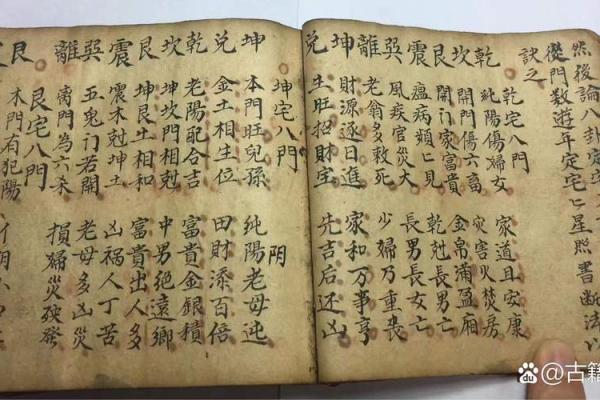 然後論八卦定宅
從門數遊年定宅七星照書斷法以
訣之
乾坎艮震巽離坤兌
乾宅八門
純陽傷婦女 家道且安康
開門傷六畜 災害火焚房
開門家富貴 金帛滿盈廂
瘟病頻七見 乾剋長男亡
風疾官災大 長男長女亡
老翁多救死 少婦乃重喪
財源逐日進 家和万事亨
生旺招財宝 先吉后还凶
坤兌乾坎艮震巽離
坤宅八門
本門旺兒孫 純陽老母迍
阴
金土相生位 田財添百倍
老陽配合吉 富貴金銀積
坤坎門相剋 中男絕遠鄉
坤艮土相和 富貴出人多
震木剋坤土 凶禍人丁苦
五鬼门若開 老母多凶災
离門為六杀 損婦災殃發
艮
艮宅八門
木門有犯陽
Baidu百度@古籍